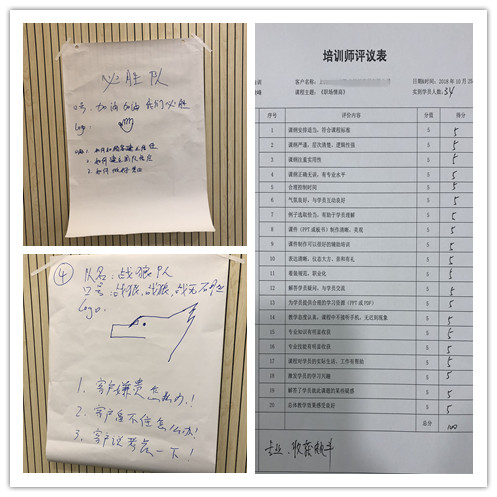 必胜队
口号：加油加油我们必胜
Logo：
④ 队名：战狼队
口号：战狼、战狼、战无不胜
logo：
1、客户嫌贵怎么办！
2、客户留不住怎么办！
3、客户说考虑一下！
培训师评议表
客户名称：
日期&时间：2018年10月25
课程主题：《职场情商》
实到学员人数：34
序号 评价内容 分值 得分
1 课纲安排适当，符合课程标准 5 5
2 课纲严谨，层次清楚，逻辑性强 5 5
3 课纲注重实用性 5 5
4 课纲正确无误，有专业水平 5 5
5 合理控制时间 5 5
6 气氛良好，与学员互动良好 5 5
7 例子选取恰当，有助于学员理解 5 5
8 课件（PPT或板书）制作清晰、美观 5 5
9 课件制作可以很好的辅助培训 5 5
10 表达清晰，仪态大方、亲和有礼 5 5
11 着装规范，职业化 5 5
12 解答学员疑问，与学员交流 5 5
13 为学员提供合理的学习资源（PPT或PDF） 5 5
14 教学态度认真，课程中不接听手机，无迟到现象 5 5
15 专业知识有明显收获 5 5
16 专业技能有明显收获 5 5
17 课程对学员的实际生活、工作有帮助 5 5
18 激发学员的学习兴趣 5 5
19 解答了学员就此课题的某些疑惑 5 5
20 总体教学效果感受良好 5 5
总分 100
专业、收获颇丰